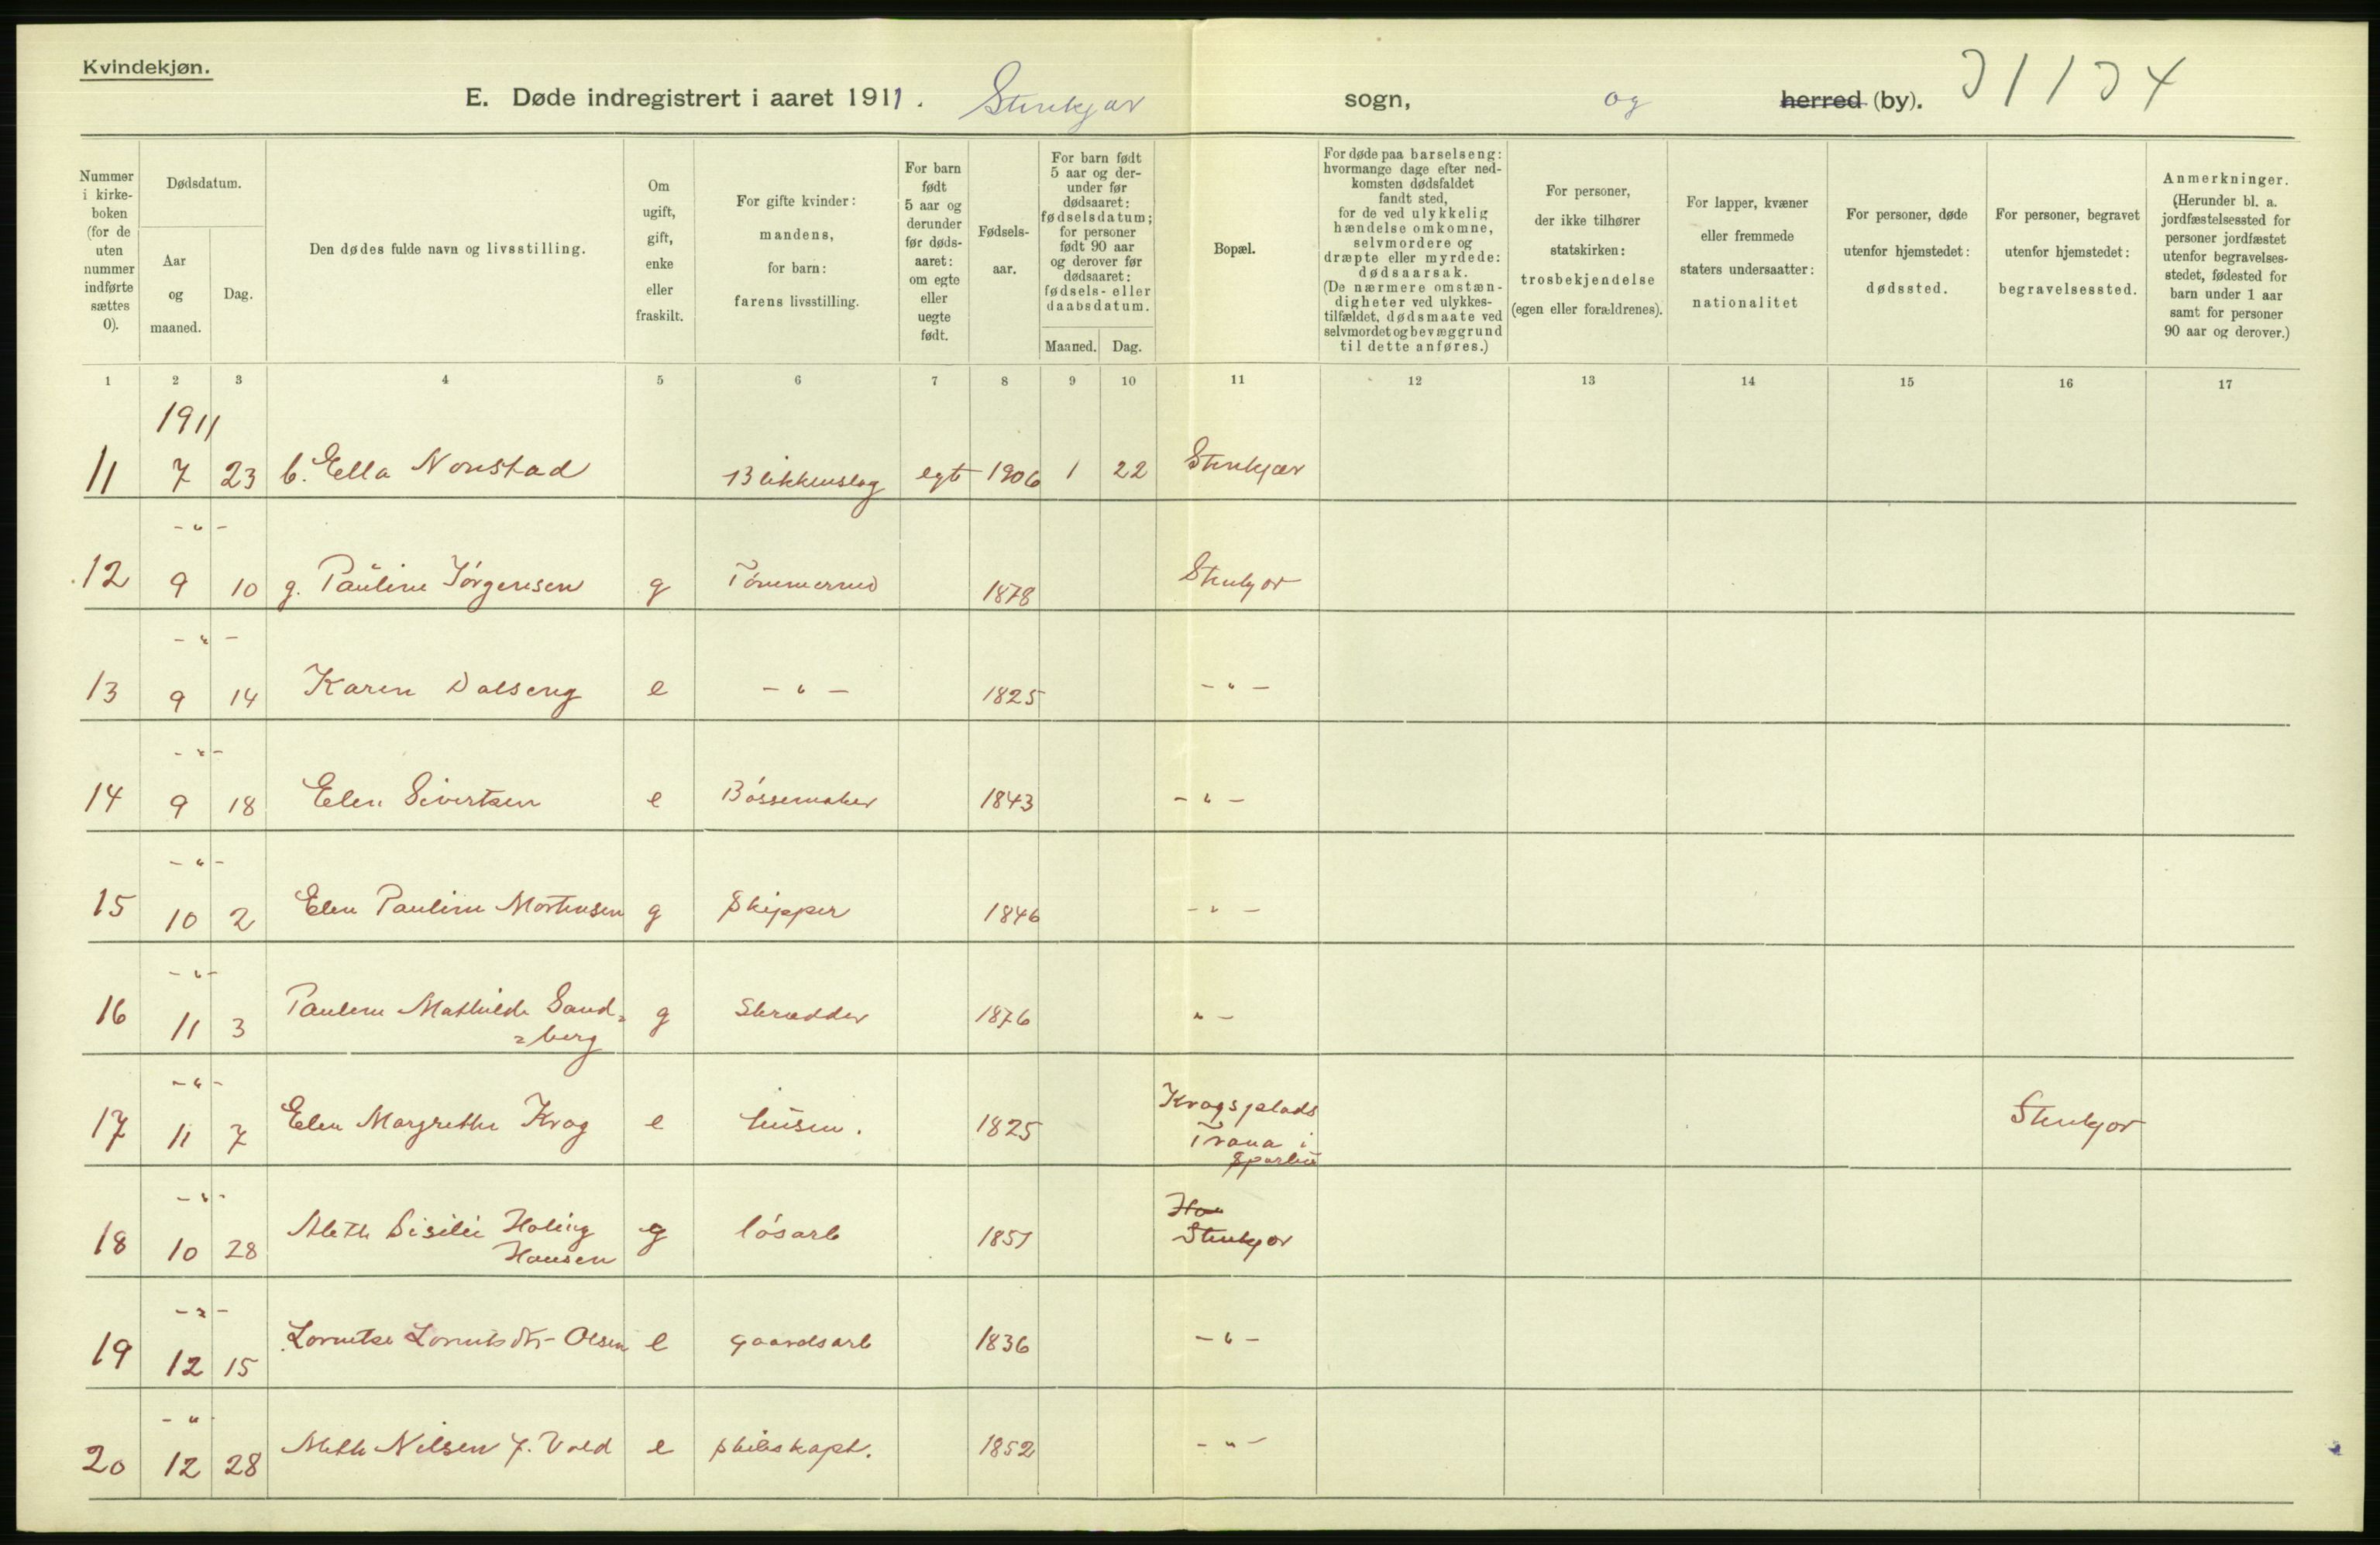 Kvindekjøn.
E. Døde indregistrert i aaret 1911. Stenkjær sogn, og herred (by).
Nummer i kirke- boken (for de uten nummer indførte sættes 0).
Dødsdatum.
Aar og maaned.
Dag.
Den dødes fulde navn og livsstilling.
Om ugift, gift, enke eller fraskilt.
For gifte kvinder: mandens, for barn: farens livsstilling.
For barn født 5 aar og derunder før døds- aaret: om egte eller uegte født.
Fødsels- aar.
For barn født 5 aar og der- under før dødsaaret: fødselsdatum; for personer født 90 aar og derover før dødsaaret: fødsels- eller daabsdatum.
Maaned. Dag.
Bopæl.
For døde paa barselseng: hvormange dage efter ned- komsten dødsfaldet fandt sted, for de ved ulykkelig hændelse omkomne, selvmordere og dræpte eller myrdede: dødsaarsak. (De nærmere omstæn- digheter ved ulykkes- tilfældet, dødsmaate ved selvmordet og bevæggrund til dette anføres.)
For personer, der ikke tilhører statskirken: trosbekjendelse (egen eller forældrenes).
For lapper, kvæner eller fremmede staters undersaatter: nationalitet
For personer, døde utenfor hjemstedet: dødssted.
For personer, begravet utenfor hjemstedet: begravelsessted.
Anmerkninger. (Herunder bl. a. jordfæstelsessted for personer jordfæstet utenfor begravelses- stedet, fødested for barn under 1 aar samt for personer 90 aar og derover.)
1 2 3 4 5 6 7 8 9 10 11 12 13 14 15 16 17
1911
11 7 23 b. Ella Nonstad Blikkenslag egt 1906 1 22 Stenkjær
- " -
12 9 10 g. Pauline Jørgensen g Tømmermd 1878 Stenkjær
- " -
13 9 14 Karen Dalseng e - " - 1825 - " -
- " -
14 9 18 Elen Sivertsen e Bøssemaker 1843 - " -
- " -
15 10 2 Elen Pauline Mortensen g Skipper 1846 - " -
- " -
16 11 3 Pauline Mathilde Sand= g Skrædder 1876 " -
=berg
- " -
17 11 7 Elen Margrethe Krog e husm. 1825 Krogsplads Stenkjær
Trana i
Sparbu
- " -
18 10 28 Meth Sisilie Holing g løsarb 1851 Stenkjær
Hansen
- " -
19 12 15 Lorentse Lorentsdtr- Olsen e gaardsarb 1836 - " -
- "
20 12 28 Meth Nilsen f. Vold e skibskapt. 1852 - " -